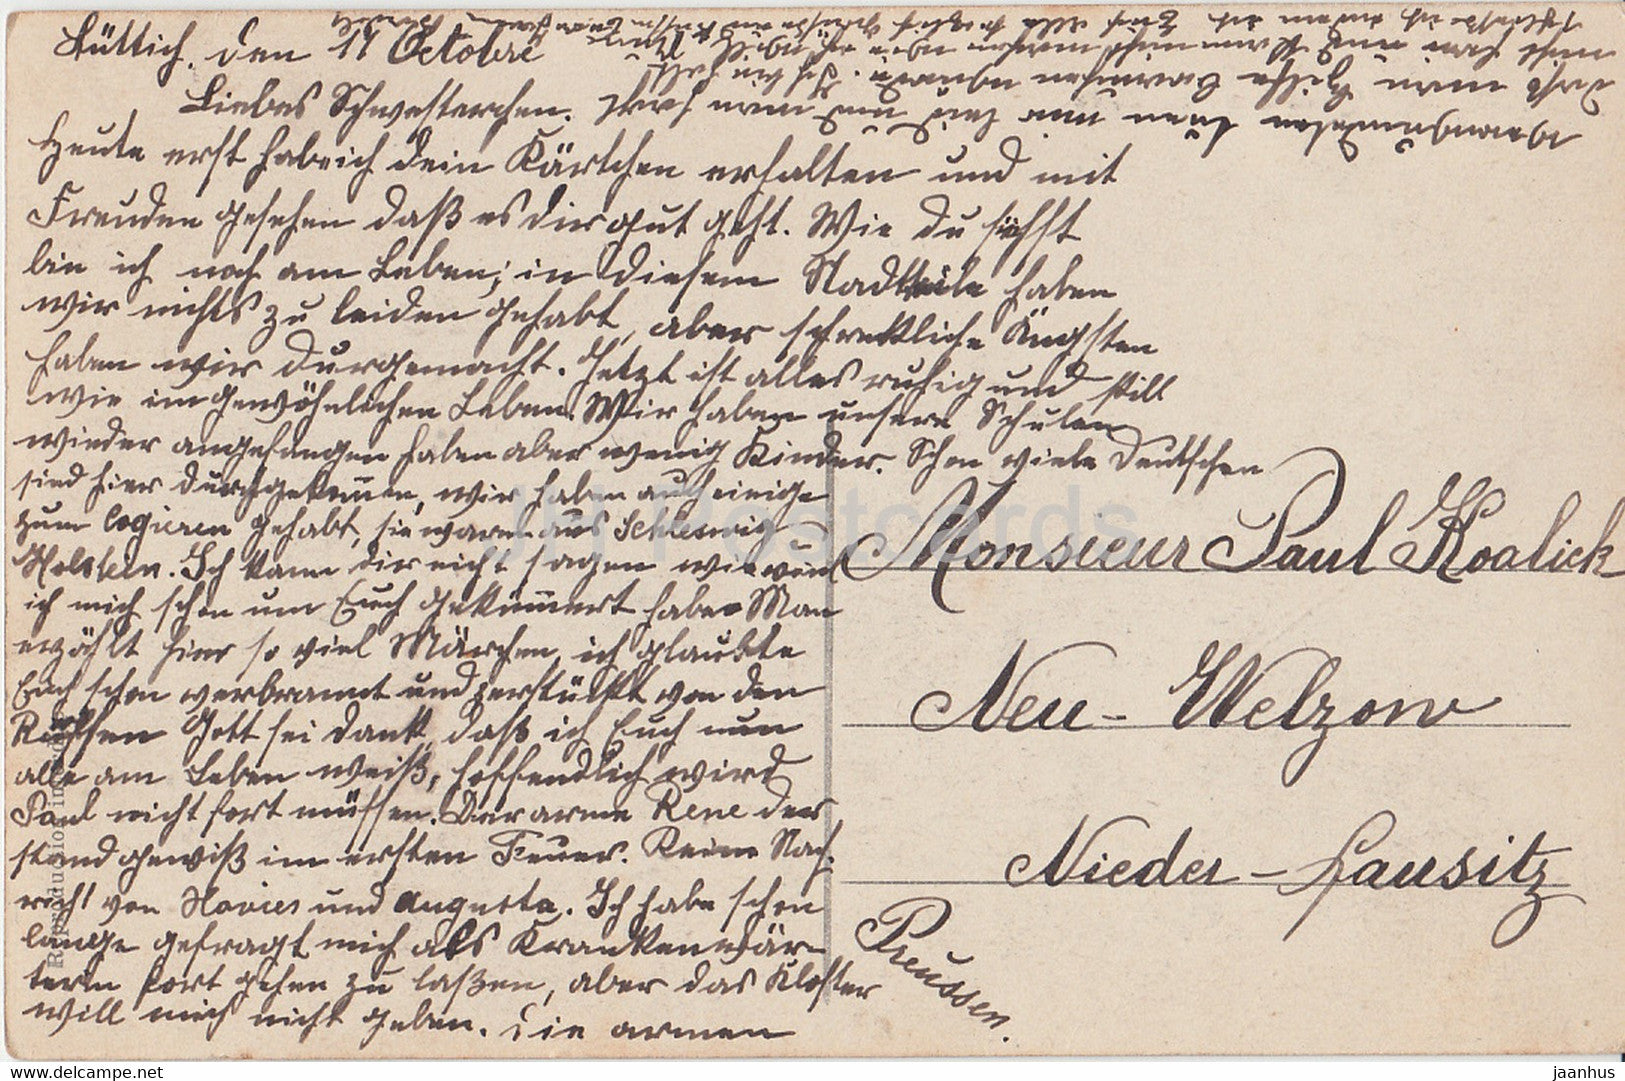 Lüttich, den 11 Octobre
Liebes Schwesterchen.
Heute erst habe ich dein Kärtchen erhalten und mit
Freuden gesehen daß es dir gut geht. Wie du siehst
bin ich noch am Leben; in diesem Stadtteile haben
wir nichts zu leiden gehabt, aber schrekliche Ängsten
haben wir durgemacht. Jetzt ist alles ruhig und still
wie im gewöhnlichen Leben. Wir haben unsere Schulen
wieder angefangen haben aber wenig Kinder. Schon viele Deutschen
sind hier durchgekommen, wir haben auch einige
zum logieren gehabt, sie waren aus Schleswig-
Holstein. Ich kann dir nicht sagen wie viel
ich mich schon um Euch gekümmert habe. Man
erzählt hier so viel Märchen, ich glaubte
Euch schon verbrannt und zerstückt von den
Russen Gott sei Dank, daß ich Euch nun
alle am Leben weiß, hoffendlich wird
Paul nicht fort müssen. Der arme Rene der
stand gewiß im ersten Feuer. Keine Nach-
richt von Novies und Augusta. Ich habe schon
lange gefragt mich als Krankenwär-
terin fort gehen zu laßen, aber das Kloster
will mich nicht geben. Die armen
Monsieur Paul Koalick
Neu-Welzow
Nieder-Lausitz
Preussen.
Reproduction in
JH Postcards
https://www.delcampe.net
jaanhus